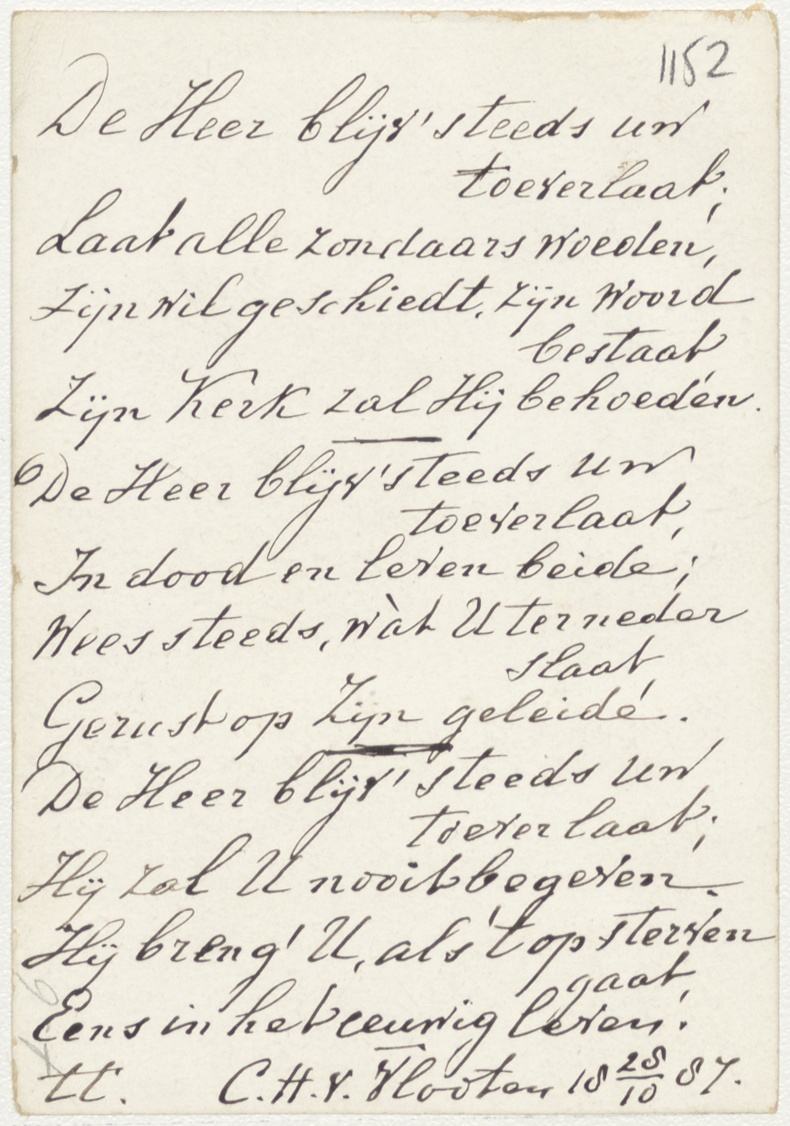 1152
De Heer blijv' steeds uw
toeverlaat;
Laat alle zondaars woeden,
Zijn wil geschiedt, zijn woord
bestaat
Zijn Kerk zal Hij behoeden.
De Heer blijv' steeds uw
toeverlaat,
In dood en leven beide;
Wees steeds, wàt U terneder
slaat,
Gerust op Zijn geleide.
De Heer blijv' steeds uw
toeverlaat;
Hij zal U nooit begeven.
Hij breng' U, als 't op sterven
gaat,
Eens in het eeuwig leven!
tt. C. H. v. Vlooten 18 28/10 87.